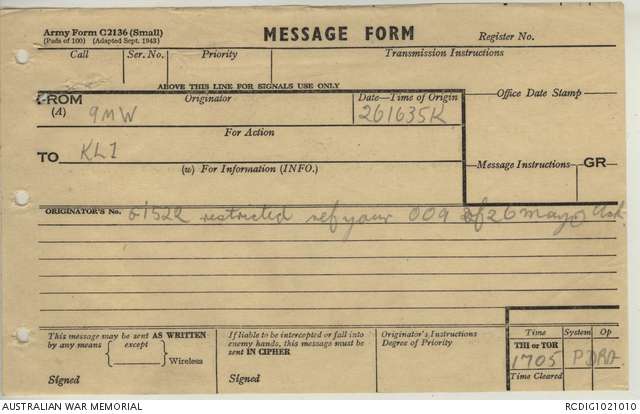 Army Form C2136 (Small)
(Pads of 100) (Adapted Sept. 1943)
MESSAGE FORM
Register No.
Call
Ser. No.
Priority
Transmission Instructions
ABOVE THIS LINE FOR SIGNALS USE ONLY
FROM
(A)
9MW
Originator
Date—Time of Origin
261635K
Office Date Stamp
For Action
TO
KL1
(w) For Information (INFO.)
Message Instructions
GR
ORIGINATOR'S No.
G1522 restricted ref your 009 of 26 may
This message may be sent AS WRITTEN
by any means except
Wireless
Signed
If liable to be intercepted or fall into
enemy hands, this message must be
sent IN CIPHER
Signed
Originator's Instructions
Degree of Priority
Time
System
Op
THI or TOR
1705
Time Cleared
AUSTRALIAN WAR MEMORIAL
RCDIG1021010